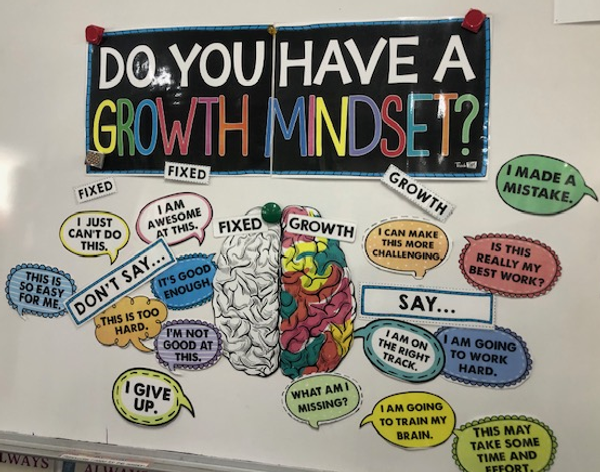 DO YOU HAVE A
GROWTH MINDSET?
FIXED
FIXED
GROWTH
I MADE A
MISTAKE.
I JUST
CAN'T DO
THIS.
I AM
AWESOME
AT THIS.
FIXED
GROWTH
I CAN MAKE
THIS MORE
CHALLENGING.
IS THIS
REALLY MY
BEST WORK?
THIS IS
SO EASY
FOR ME.
DON'T SAY...
IT'S GOOD
ENOUGH.
SAY...
THIS IS TOO
HARD.
I'M NOT
GOOD AT
THIS.
I AM ON
THE RIGHT
TRACK.
I AM GOING
TO WORK
HARD.
I GIVE
UP.
WHAT AM I
MISSING?
I AM GOING
TO TRAIN MY
BRAIN.
THIS MAY
TAKE SOME
TIME AND
EFFORT.
ALWAYS
ALWAYS